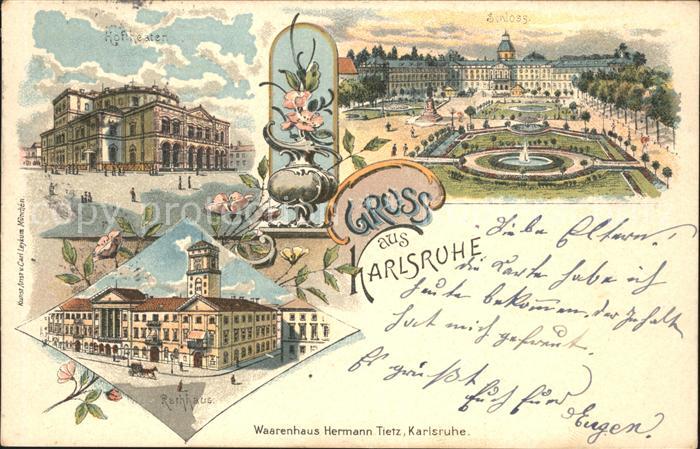 Hoftheater.
Schloss.
GRUSS
aus
KARLSRUHE
Kunstanst v. Carl Leykum, München.
Rathhaus.
Liebe Eltern!
die Karte habe ich
heute bekommen, der Inhalt
hat mich gefreut.
Es grüßt
Euch Euer
Eugen.
Waarenhaus Hermann Tietz, Karlsruhe.